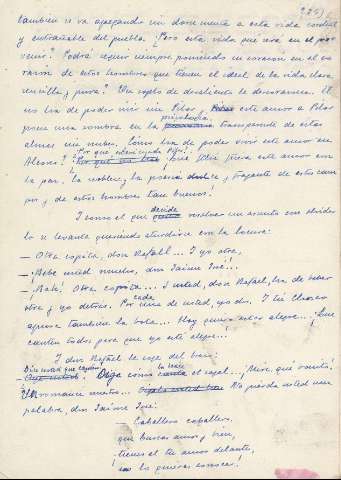 también se va apegando un docemente a esta vida cordial
y entrañable del pueblo. ¿Pero esta vida que será en el por-
venir? ¿Podrá seguir siempre poniendo su corazón en el co-
razón de estos hombres que tienen el ideal de la vida clara,
sencilla y pura? Un soplo de desaliento le desorienta. El
no ha de poder vivir sin Pilar. este amor a Pilar
pone una sombra en la psicología transparente de estas
almas sin nubes. ¿Cómo ha de poder vivir este amor en
Alcorá? ¿Por qué está aquí Pepe? ¿Qué Dios para este amor con
la paz, la nobleza, la poesía dulce y fragante de estos cam-
pos y de estos hombres tan buenos?
Y como el que decide resolver un asunto con olvidar-
lo se levanta queriendo aturdirse con la locura:
— Otra copita, don Rafael... Y yo otra,
— ¡Bebe usted mucho, don Jaime José!...
— ¡Bah! Otra copita... Y usted, don Rafael, ha de beber
otra y yo detrás. Por cada de usted, yo dos. Y tú Chusco
apura también la bota... Hay que estar alegre...! ¡Que
canten todos para que yo esté alegre...!
Y don Rafael le coge del brazo:
Oiga como canta la voz el zagal... ¡Mire qué bonito!
¡Un romance nuestro... No pierda usted una
palabra, don Jaime José:
Caballero caballero,
que buscas amor y bien,
tienes al tu amor delante,
¡no lo quieras conocer!